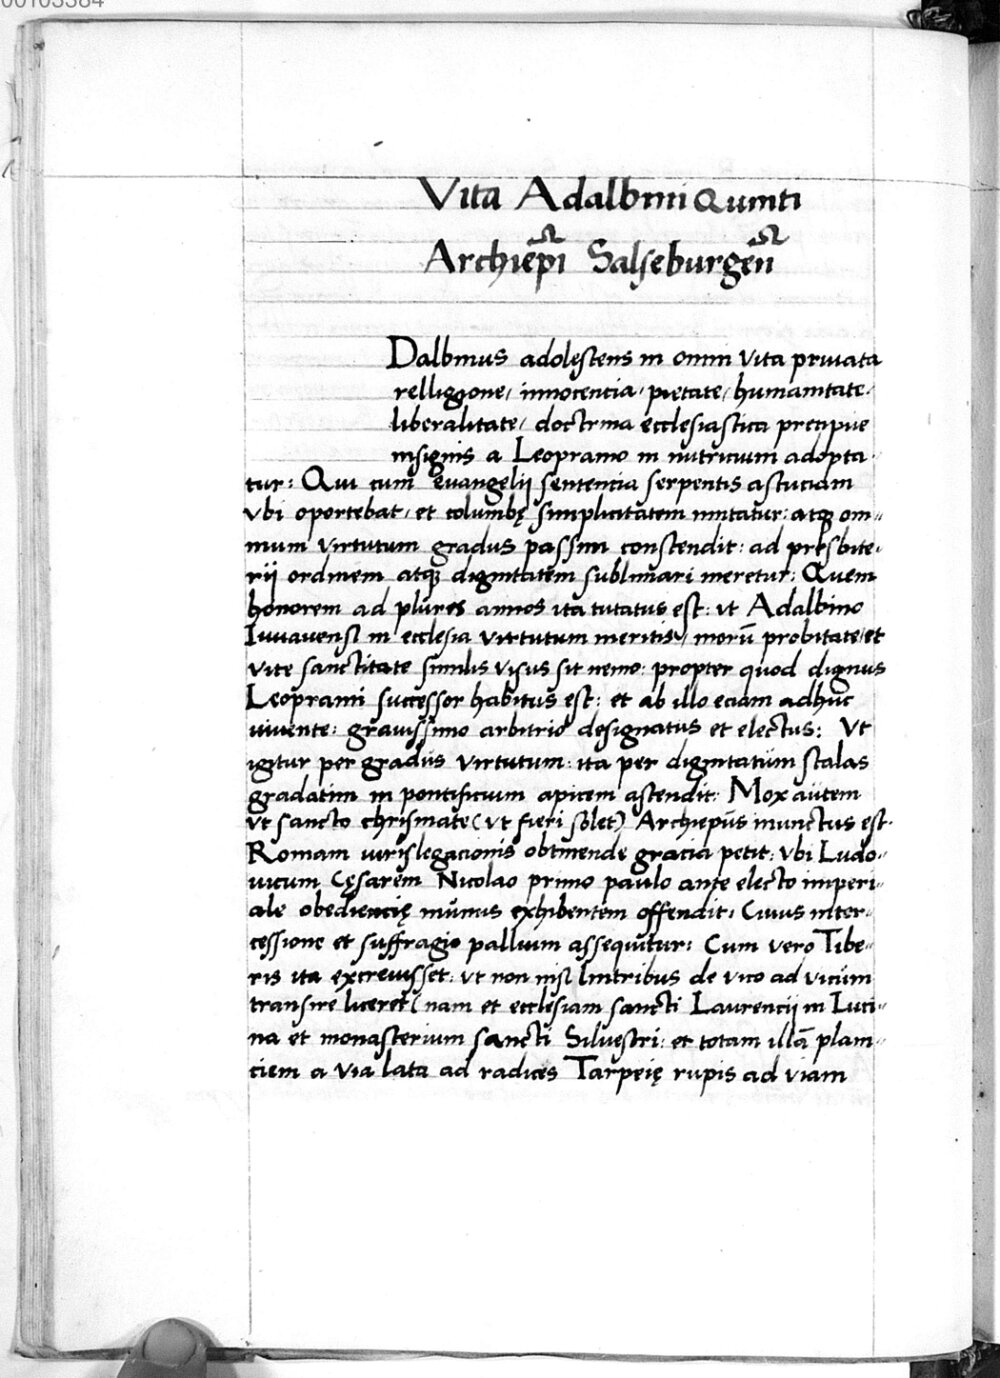 00103384
Vita Adalbini Quinti
Archiēpi Salseburgēn
Dalbinus adolescens in omni vita priuata
relligione, innocencia, pietate, humanitate,
liberalitate, doctrina ecclesiastica precipue
insignis a Leopramo in nutricium adopta
tur: Qui cum evangelij sentencia serpentis astuciam
vbi oportebat, et columbę simplicitatem imitatur: atq; om=
nium virtutum gradus passim conscendit: ad presbite=
rij ordinem atq; dignitatem sublimari meretur: Quem
honorem ad plures annos ita tutatus est: vt Adalbino
Iuuauensi in ecclesia virtutum meritis, morū probitate, et
vite sanctitate similis visus sit nemo: propter quod dignus
Leoprami successor habitus est: et ab illo eciam adhuc
viuente: grauissimo arbitrio designatus et electus: Vt
igitur per gradus virtutum: ita per dignitatum scalas
gradatim in pontificium apicem ascendit: Mox autem
vt sancto chrismate (vt fieri solet) Archiepūs inunctus est.
Romam iurislegacionis obtinende gracia petit: vbi Ludo=
uicum Cęsarem Nicolao primo paulo ante electo imperi=
ale obediencię munus exhibentem offendit: Cuius inter=
cessione et suffragio pallium assequitur: Cum vero Tibe=
ris ita excreuisset: vt non nisi lintribus de vico ad vicum
transire liceret (nam et ecclesiam sancti Laurencij in Luci=
na et monasterium sancti Siluestri: et totam illā plani=
ciem a via lata ad radices Tarpeię rupis ad viam